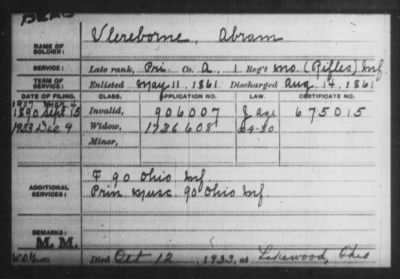 DEAD
NAME OF SOLDIER: Vlereborne, Abram
SERVICE: Late rank, Pri. Co. A, 1 Reg't Mo. (Rifles) Inf
TERM OF SERVICE: Enlisted May 11, 1861 Discharged Aug. 14, 1861
DATE OF FILING. CLASS. APPLICATION NO. LAW. CERTIFICATE NO.
1907
1890 Sept 15 Invalid, 906007 J age 675015
1933 Dec 9 Widow, 1736608
Minor,
ADDITIONAL SERVICES: F 90 Ohio Inf
Prin. Musc. 90 Ohio Inf.
REMARKS:
M. M.
Died Oct 12, 1933, at Lakewood, Ohio